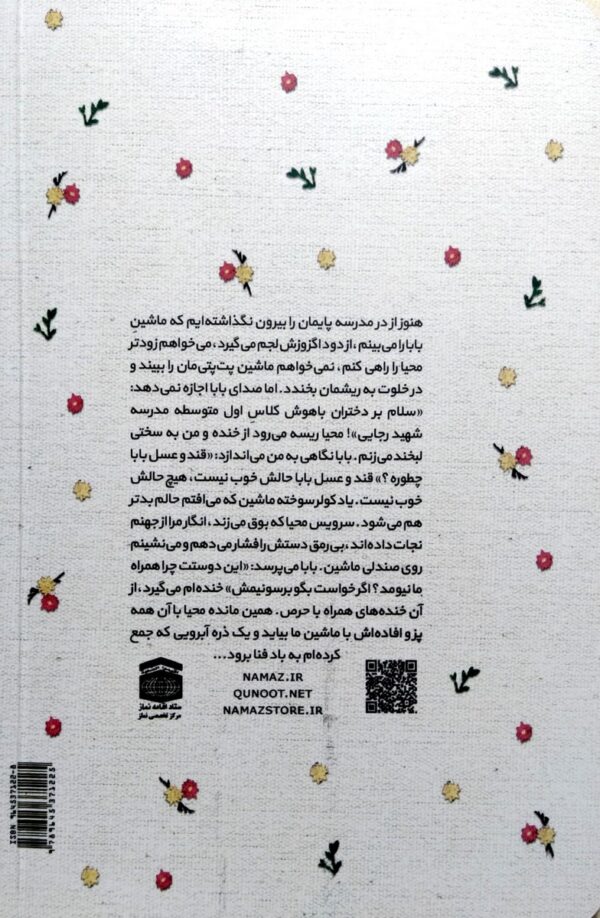 هنوز از در مدرسه پایمان را بیرون نگذاشته‌ایم که ماشینِ
بابا را می‌بینم، از دود اگزوزش لجم می‌گیرد، می‌خواهم زودتر
محیا را راهی کنم، نمی‌خواهم ماشین پت‌پتی‌مان را ببیند و
در خلوت به ریشمان بخندد. اما صدای بابا اجازه نمی‌دهد:
«سلام بر دختران باهوش کلاسِ اول متوسطه مدرسه
شهید رجایی»! محیا ریسه می‌رود از خنده و من به سختی
لبخند می‌زنم. بابا نگاهی به من می‌اندازد: «قند و عسل بابا
چطوره؟» قند و عسل بابا حالش خوب نیست، هیچ حالش
خوب نیست. یاد کولر سوخته ماشین که می‌افتم حالم بدتر
هم می‌شود. سرویس محیا که بوق می‌زند، انگار مرا از جهنم
نجات داده‌اند، بی‌رمق دستش را فشار می‌دهم و می‌نشینم
روی صندلی ماشین. بابا می‌پرسد: «این دوستت چرا همراه
ما نیومد؟ اگر خواست بگو برسونیمش» خنده‌ام می‌گیرد، از
آن خنده‌های همراه با حرص. همین مانده محیا با آن همه
پز و افاده‌اش با ماشین ما بیاید و یک ذره آبرویی که جمع
کرده‌ام به باد فنا برود...
NAMAZ.IR
QUNOOT.NET
NAMAZSTORE.IR
ستاد اقامه نماز
مرکز تخصصی نماز
ISBN 964537122-8
9789645371225